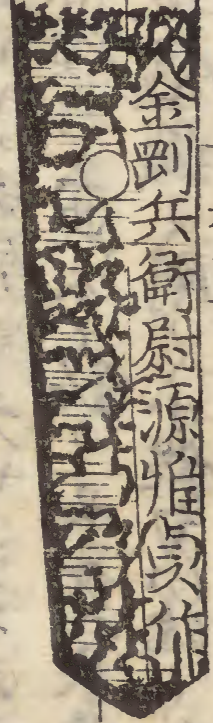 金剛兵衛尉源惟貞作